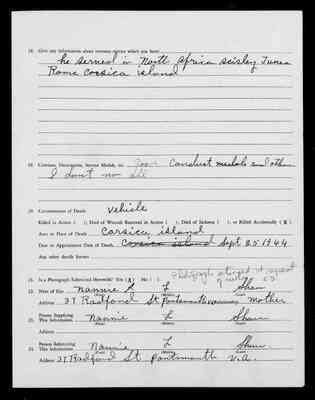 18. Give any information about overseas service which you have:
he served in North Africa scisley Tunea
Rome Corsica island
19. Citations, Decorations, Service Medals, etc. Good Conduct medals and other
I dont no all
20. Circumstances of Death vehicle
Killed in Action ( ); Died of Wounds Received in Action ( ); Died of Disease ( ); or Killed Accidentally (X)
Area or Place of Death Corsica island
Date or Approximate Date of Death Corsica island Sept 25 1944
Any other death factors
21. Is a Photograph Submitted Herewith? Yes (X) No ( )
22. Next of Kin Nannie L Shaw
Address 37 Radford St Portsmouth Va Relationship Mother
Person Supplying
23. This Information Nannie L Shaw
Address
Person Submitting
24. This Information Nannie L Shaw
Address 37 Radford St portsmouth V.a.